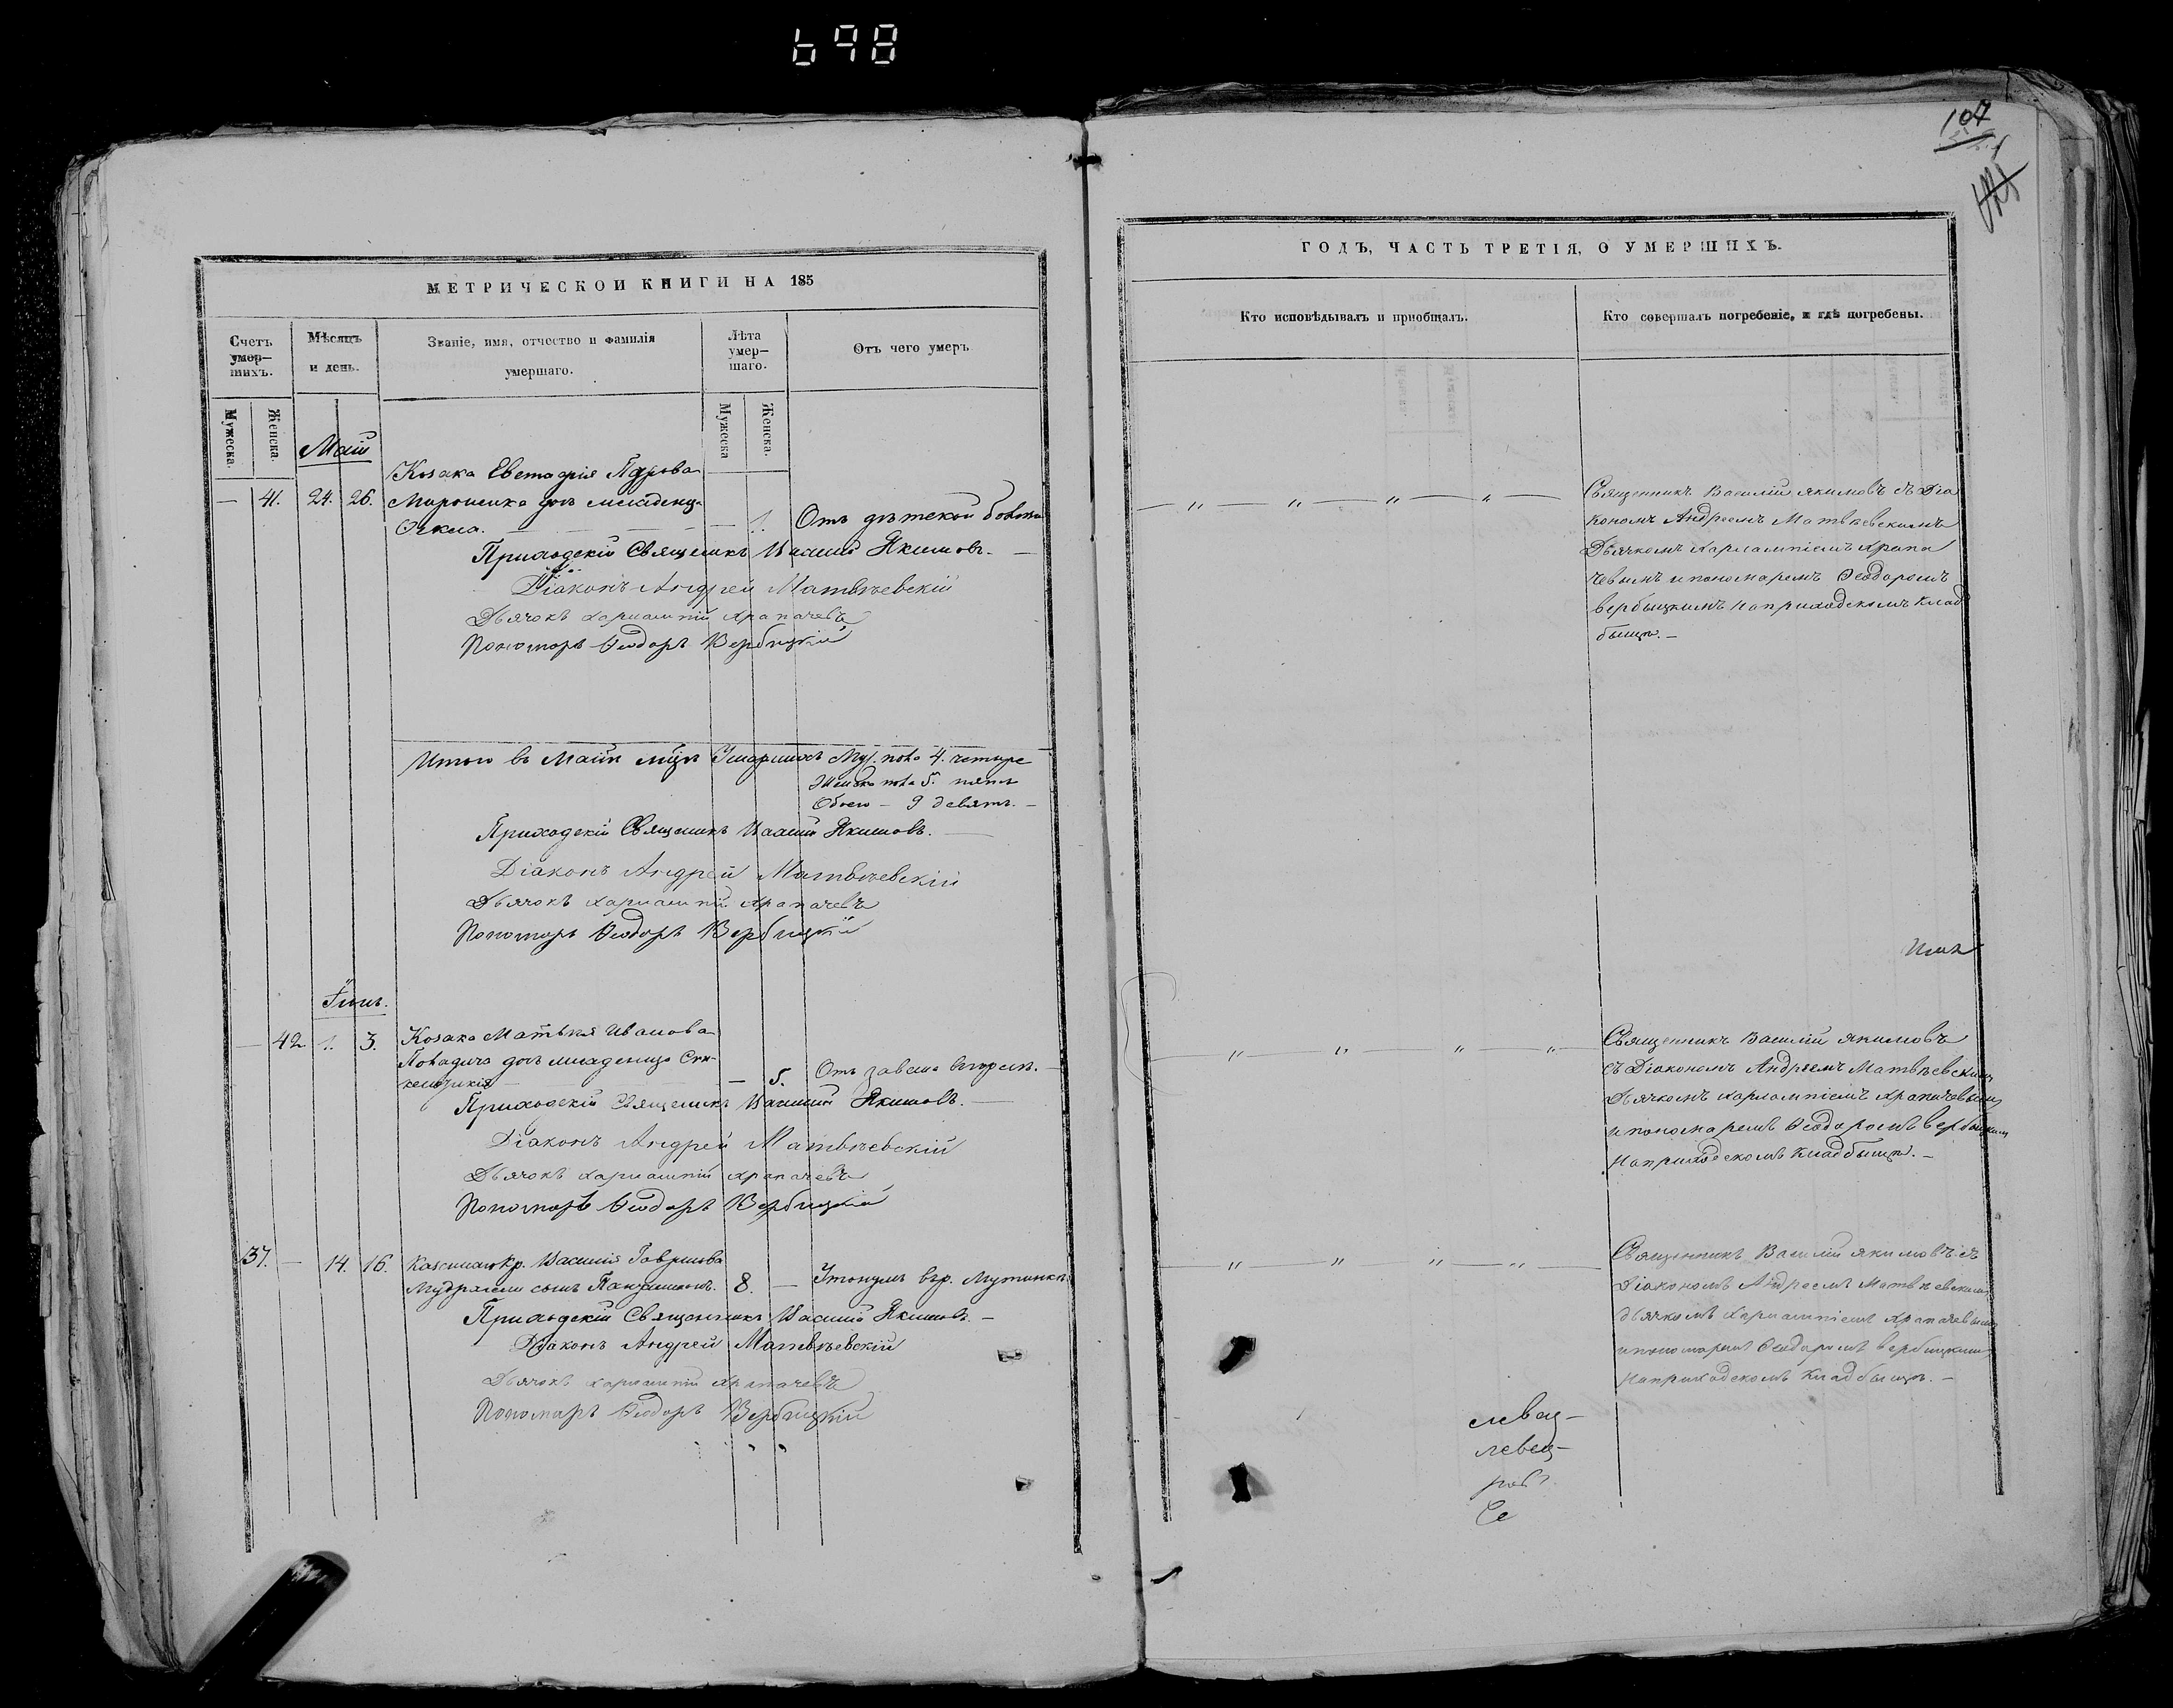 698
107
МЕТРИЧЕСКОЙ КНИГИ НА 185
Счетъ умер-
шихъ.
Мѣсяцъ
и день.
Званіе, имя, отчество и фамилія
умершаго.
Лѣта
умер-
шаго.
Отъ чего умеръ
Мужеска.
Женска.
Мужеска
Женска.
Маій
Козака Евстафія
— 41. 24. 26. Мироненка дочь младенц.
— 1. Отъ дѣтской
Приходскій Священникъ Василій Якимовъ. —
Діаконъ Андрей Матвѣевскій
Дьячокъ Харлампій Храпачевъ
Пономарь Ѳеодоръ Вербицкій
Итого въ Маіи мцѣ Умершихъ Муж. пола 4. четыре
Женска пола 5. пять
Обоего — 9 девять. —
Приходскій Священникъ Василій Якимовъ. —
Діаконъ Андрей Матвѣевскій
Дьячокъ Харлампій Храпачевъ
Пономарь Ѳеодоръ Вербицкій
Іюнь.
— 42. 1. 3. Козака Матвѣя Иванова
дочь младенца
— 5. Отъ
Приходскій Священникъ Василій Якимовъ. —
Діаконъ Андрей Матвѣевскій
Дьячокъ Харлампій Храпачевъ
Пономарь Ѳеодоръ Вербицкій
37. — 14. 16. Василія Гаврилова
сынъ Пантелимонъ. 8. — Утонулъ въ р.
Приходскій Священникъ Василій Якимовъ. —
Діаконъ Андрей Матвѣевскій
Дьячокъ Харлампій Храпачевъ
Пономарь Ѳеодоръ Вербицкій
ГОДЪ, ЧАСТЬ ТРЕТІЯ, О УМЕРШИХЪ.
Кто исповѣдывалъ и пріобщалъ.
Кто совершалъ погребеніе, и гдѣ погребены.
Священникъ Василій Якимовъ съ Діа
кономъ Андреемъ Матвѣевскимъ
Дьячкомъ Харлампіемъ Храпа
чевымъ и пономаремъ Ѳеодоромъ
Вербицкимъ на приходскомъ клад
бищѣ. —
Священникъ Василій Якимовъ
съ Діакономъ Андреемъ Матвѣевскимъ
Дьячкомъ Харлампіемъ Храпачевымъ
и пономаремъ Ѳеодоромъ Вербицкимъ
на приходскомъ кладбищѣ. —
Священникъ Василій Якимовъ съ
Діакономъ Андреемъ Матвѣевскимъ
дьячкомъ Харлампіемъ Храпачевымъ
и пономаремъ Ѳеодоромъ Вербицкимъ
на приходскомъ кладбищѣ. —